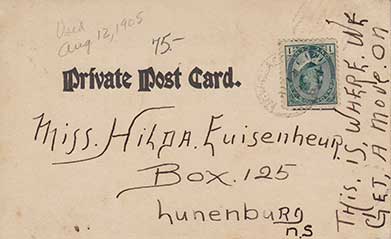 Used
Aug 12, 1905
75.-
Private Post Card.
Miss. Hilda. Euisenheur.
Box. 125
Lunenburg
n.s
THIS. IS. WHERE. WE
GET, A MOVE ON
1 1